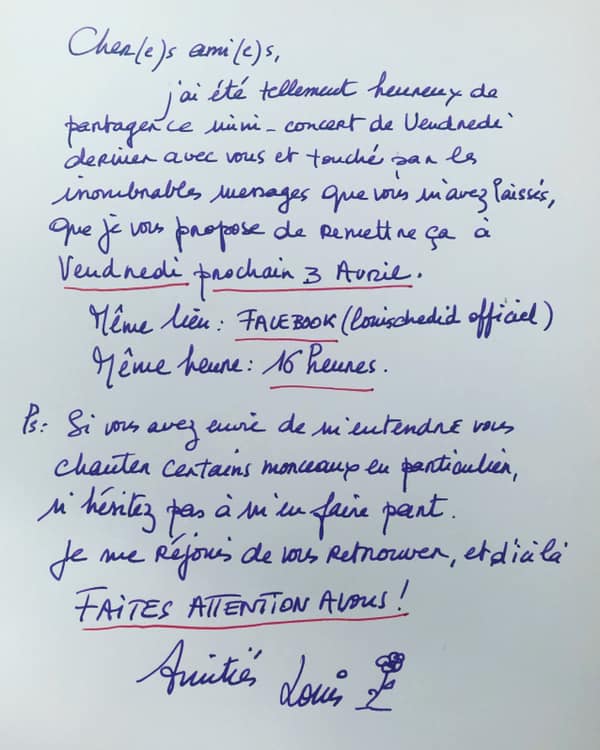 Cher(e)s ami(e)s,
j'ai été tellement heureux de
partager ce mini-concert de Vendredi
dernier avec vous et touché par les
innombrables messages que vous m'avez laissés,
que je vous propose de remettre ça à
Vendredi prochain 3 Avril.
Même lieu : FACEBOOK (louischedid officiel)
Même heure : 16 heures.
Ps : Si vous avez envie de m'entendre vous
chanter certains morceaux en particulier,
n'hésitez pas à m'en faire part.
Je me réjouis de vous retrouver, et d'ici là
FAITES ATTENTION A VOUS !
Amitiés Louis